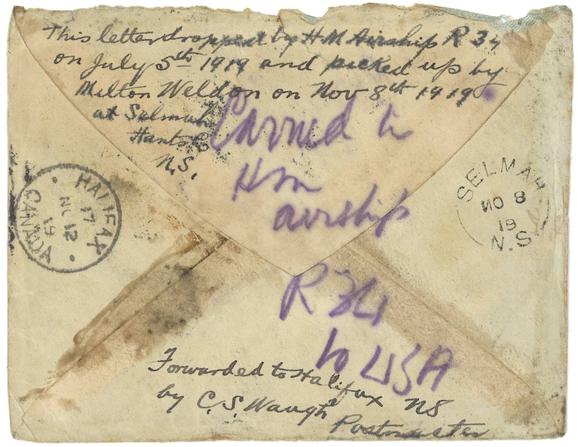 This letter dropped by HM Airship R 34
on July 5th 1919 and picked up by
Milton Weldon on Nov 8th 1919
at Selmah
Hants Co
N.S.
Carried in
HM
airship
R 34
to USA
HALIFAX
17
NO 12
19
CANADA
SELMAH
NO 8
19
N.S.
Forwarded to Halifax NS
by C.S. Waugh
Postmaster